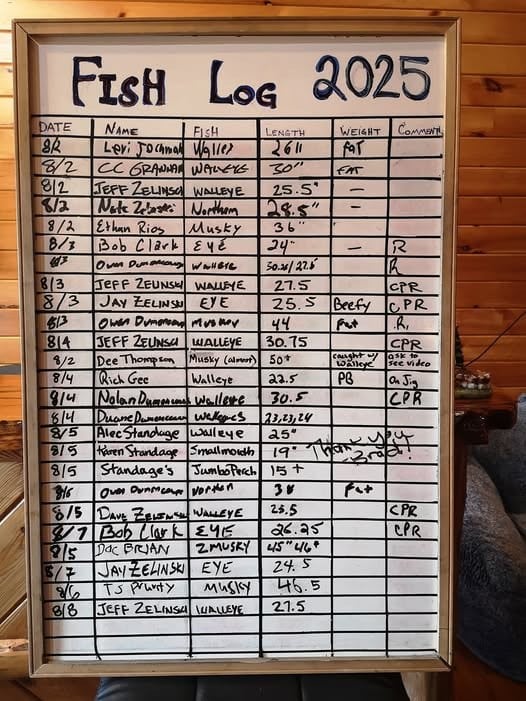 FISH LOG 2025
DATE NAME FISH LENGTH WEIGHT COMMENT
8/2 Levi Walley 26" FAT
8/2 CC WALLEYE 30" FAT
8/2 JEFF ZELINSKI WALLEYE 25.5" —
8/2 Nate Northern 28.5" —
8/2 Ethan Rios Musky 36"
8/3 Bob Clark EYE 24" — R
8/3 Owen Walleye R
8/3 JEFF ZELINSKI WALLEYE 27.5 CPR
8/3 JAY ZELINSKI EYE 25.5 Beefy CPR
8/3 Owen Muskey 44 Fat .R.
8/4 JEFF ZELINSKI WALLEYE 30.75 CPR
8/2 Dee Thompson Musky (almost) 50+ caught w/ Walleye ask to see video
8/4 Rich Gee Walleye 22.5 PB on Jig
8/4 Nolan Walleye 30.5 CPR
8/4 Duane 23,23,24
8/5 Alec Standage Walleye 25"
8/5 Karen Standage Smallmouth 19" Thank you Brad!
8/5 Standage's Jumbo Perch 15+
8/6 Owen Fat
8/5 DAVE ZELINSKI WALLEYE 25.5 CPR
8/7 Bob Clark EYE 26.25 CPR
8/5 DOC BRIAN 2 MUSKY 45" 46"
8/7 JAY ZELINSKI EYE 24.5
8/6 TJ MUSKY 46.5
8/8 JEFF ZELINSKI WALLEYE 27.5